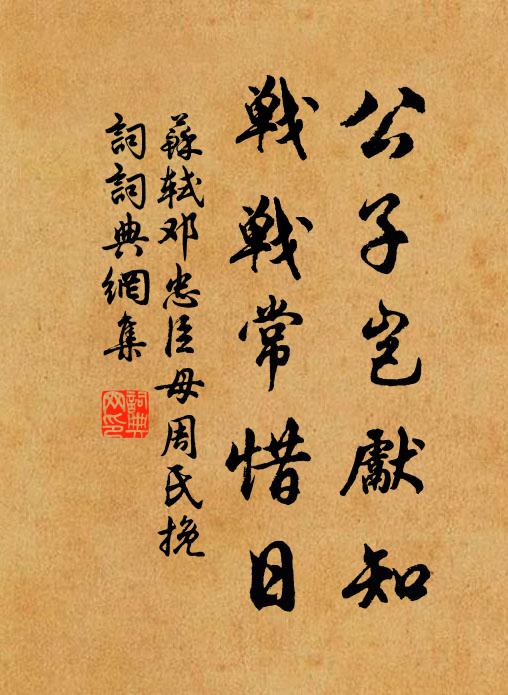 公子岂獻知
戦戦常惜日
蘇轼邓忠臣母周氏挽
詞詞典網集
詞典
网印